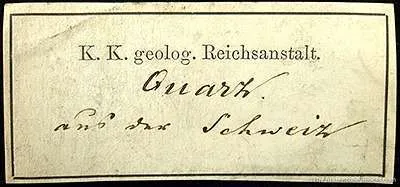 K. K. geolog. Reichsanstalt.
Quarz.
aus der Schweiz